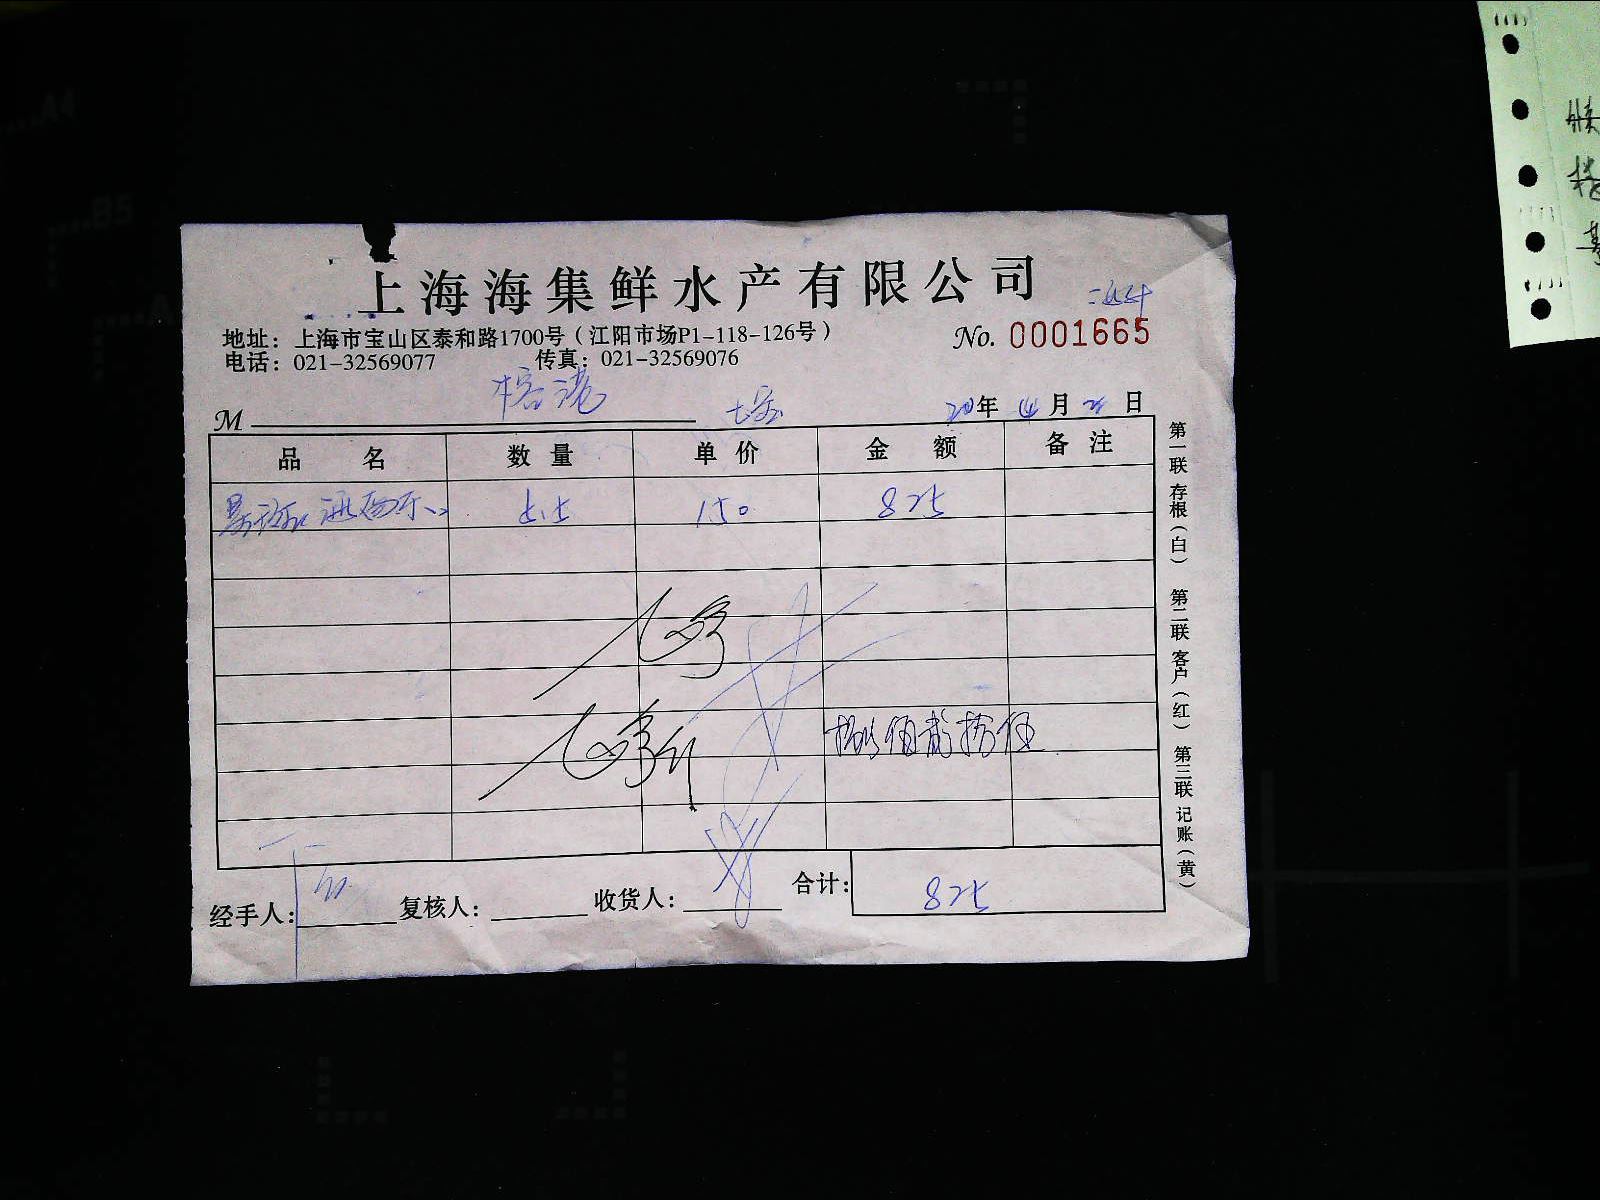 上海海集鲜水产有限公司
地址：上海市宝山区泰和路1700号（江阳市场P1-118-126号）
No. 0001665
电话：021-32569077 传真：021-32569076
榕港
M 年 月 日
品名 数量 单价 金额 备注
5.5 150 825
捌佰贰拾伍
经手人： 复核人： 收货人： 合计： 825
第一联 存根（白） 第二联 客户（红） 第三联 记账（黄）